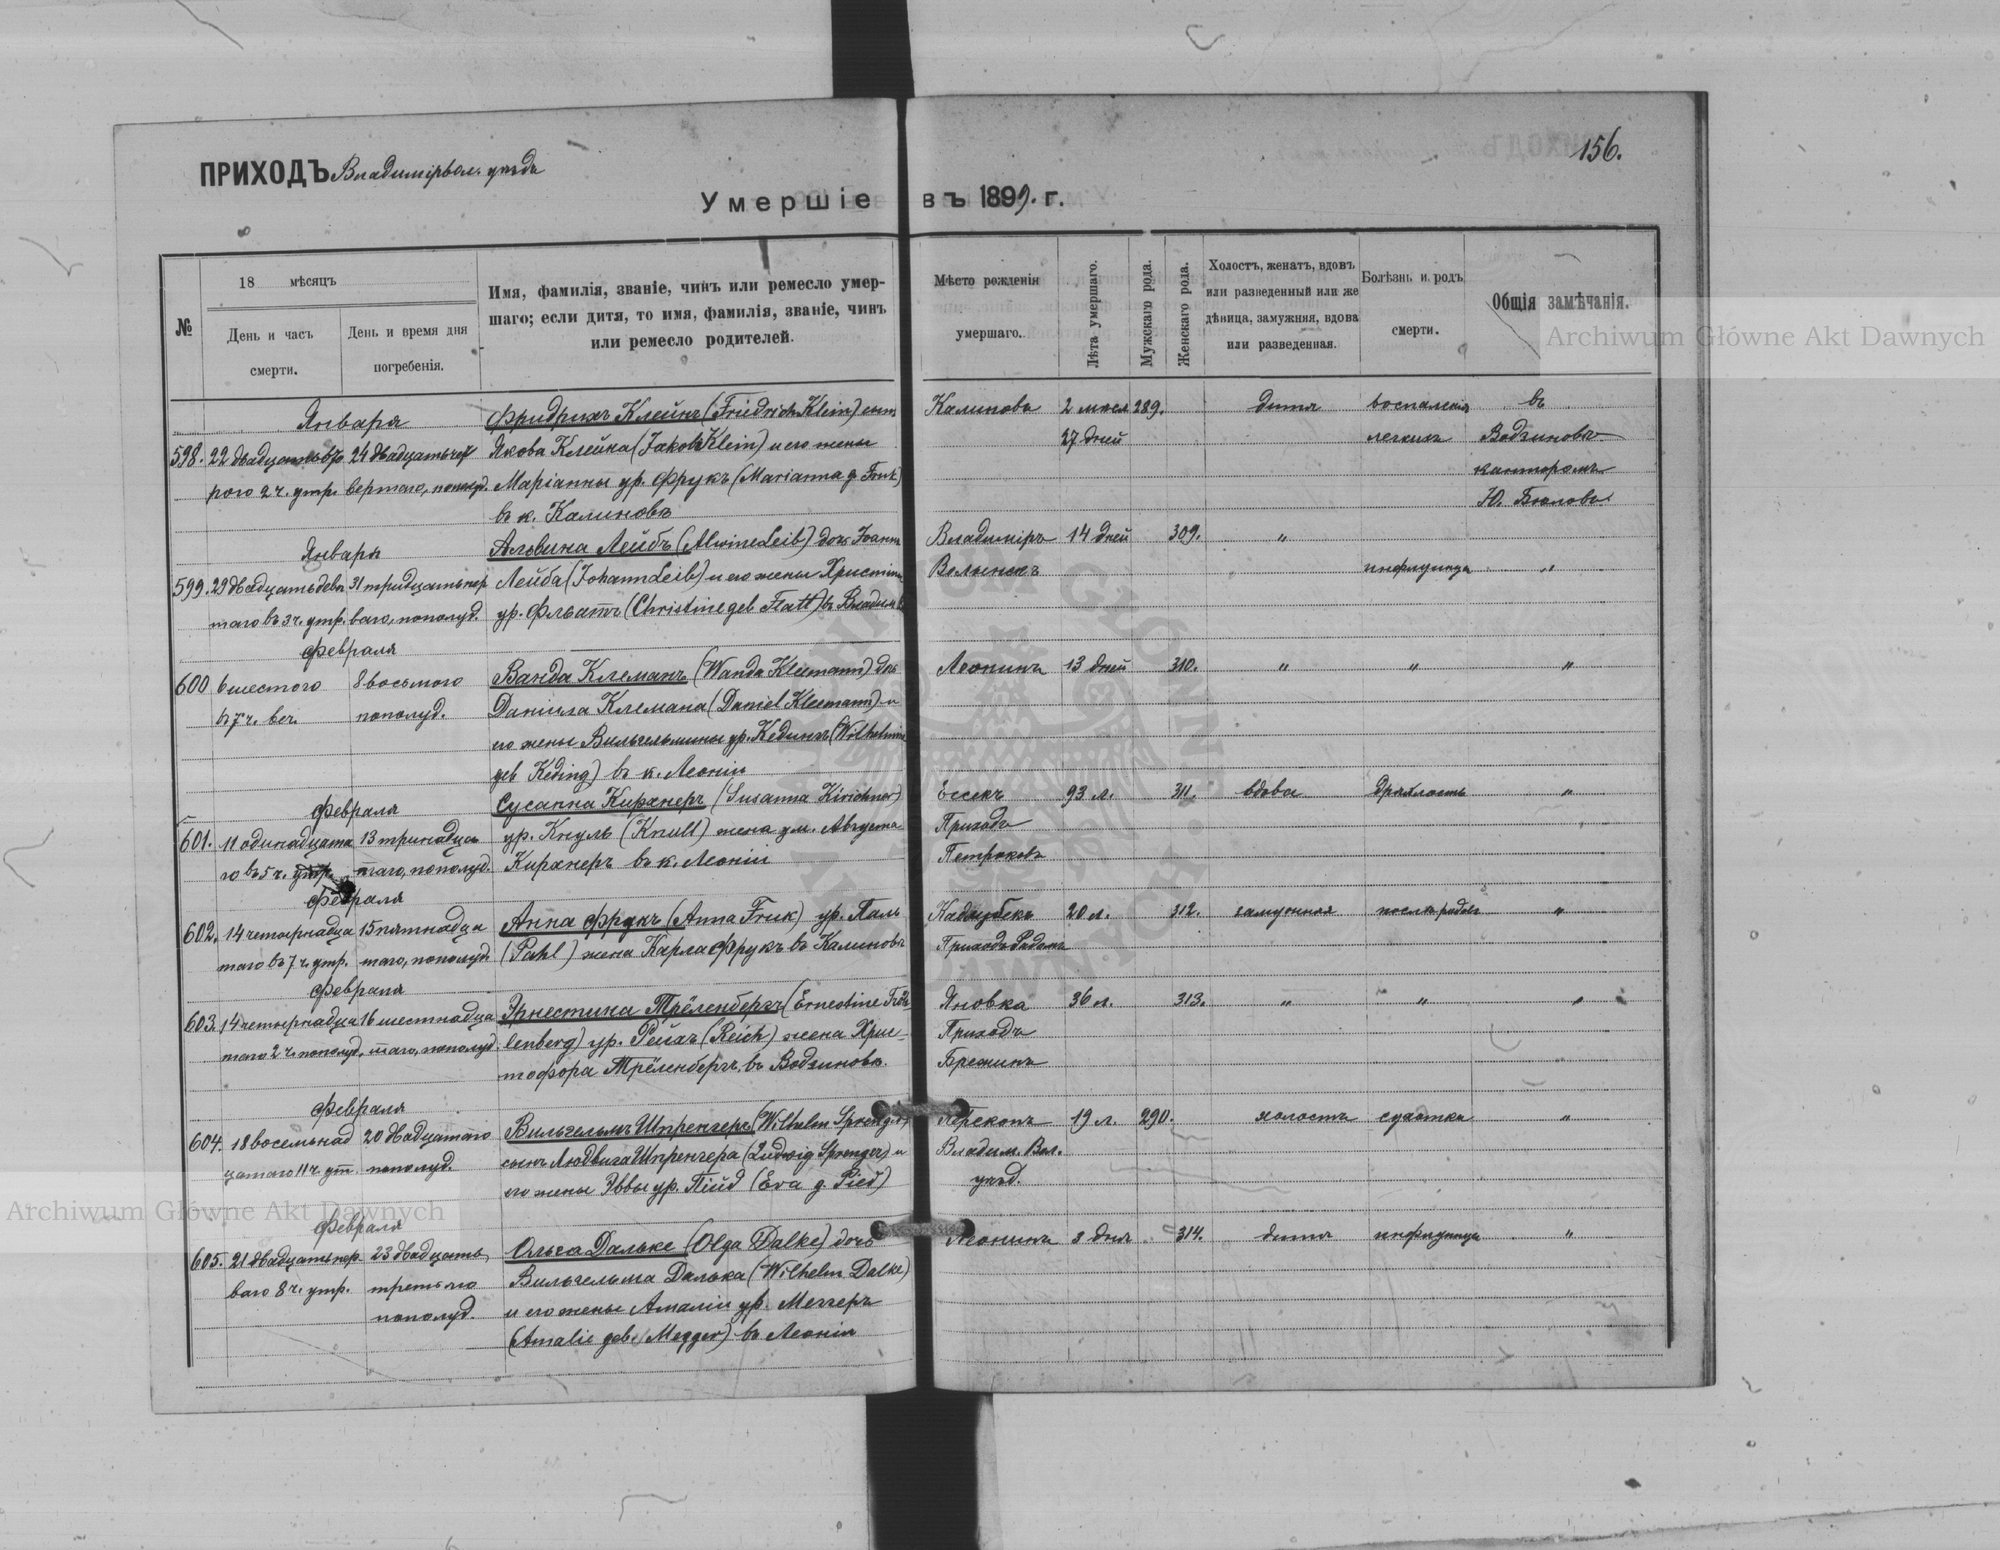 156.
ПРИХОДЪ Владимірвол. уѣздъ
Умершіе въ 1899. г.
№
18 мѣсяцъ
День и часъ смерти.
День и время дня погребенія.
Имя, фамилія, званіе, чинъ или ремесло умер-
шаго; если дитя, то имя, фамилія, званіе, чинъ
или ремесло родителей.
Мѣсто рожденія
умершаго.
Лѣта умершаго.
Мужскаго рода.
Женскаго рода.
Холостъ, женатъ, вдовъ
или разведенный или же
дѣвица, замужняя, вдова
или разведенная.
Болѣзнь и родъ
смерти.
Общія замѣчанія.
Archiwum Główne Akt Dawnych
Января Фридрихъ Клейнъ (Friedrich Klein) сынъ Калиновъ 2 мѣся 289. дитя воспаленія въ
598. 22 двадцатьвто 24 двадцатьчет Якова Клейна (Jakob Klein) и его жены 27 дней легкихъ Водзиновѣ
рого 2 ч. утр. вертаго, пополуд. Маріанны ур. Фрукъ (Marianna g. Fruk) канторомъ
въ к. Калиновѣ Ю. Бюловъ
Января Альвина Лейбъ (Alwine Leib) дочь Іоанна Владиміръ 14 дней 309. "
599. 29 двадцатьдевя 31 тридцатьпер Лейба (Johann Leib) и его жены Христины Волынскъ инфлуенца "
таго въ 3 ч. утр. ваго, пополуд. ур. Флаттъ (Christine geb Flatt) въ Владим
Февраля
600 6 шестого 8 восьмого Ванда Клеманъ (Wanda Kleemann) дочь Леонинъ 13 дней 310. " " "
въ 7 ч. веч. пополуд. Даніила Клемана (Daniel Kleemann) и
его жены Вильгельмины ур. Кедингъ (Wilhelmine
geb Keding) въ к. Леоніи
Февраля Сусанна Кирхнеръ (Susanna Kirichner) Ессекъ 93 л. 311. вдова дряхлость "
601. 11 одинадцата 13 тринадца ур. Кнуль (Knull) жена ум. Августа Приходъ
го въ 5 ч. утр. таго, пополуд. Кирхнеръ въ к. Леоніи Петроковъ
Февраля
602. 14 четырнадца 15 пятнадца Анна Фрукъ (Anna Fruk) ур. Паль Кадлубекъ 20 л. 312. замужняя послѣ родовъ "
таго въ 7 ч. утр. таго, пополуд. (Pahl) жена Карла Фрукъ въ Калиновѣ Приходъ Радомъ
Февраля Эрнестина Трёленбергъ (Ernestine Trö- Яновка 36 л. 313. " " "
603. 14 четырнадца 16 шестнадца lenberg) ур. Рейхъ (Reich) жена Хрис- Приходъ
таго 2 ч. пополуд. таго, пополуд. тофора Трёленбергъ въ Водзиновѣ.
Февраля
604. 18 восемьнад 20 двадцатаго Вильгельмъ Шпренгеръ (Wilhelm Sprenger) Перекопъ 19 л. 290. холостъ сухотка "
цатаго 11 ч. ут. пополуд. сынъ Людвига Шпренгера (Ludwig Sprenger) и Владим. Вол.
его жены Эввы ур. Пійд (Eva g. Pied) уѣзд.
Февраля
605. 21 двадцатьпер 23 двадцать Ольга Дальке (Olga Dalke) дочь Леонинъ 3 дня 314. дитя инфлуенца "
ваго 8 ч. утр. третьяго Вильгельма Далька (Wilhelm Dalke)
пополуд. и его жены Амаліи ур. Меггеръ
(Amalie geb. Megger) въ Леоніи
Archiwum Główne Akt Dawnych